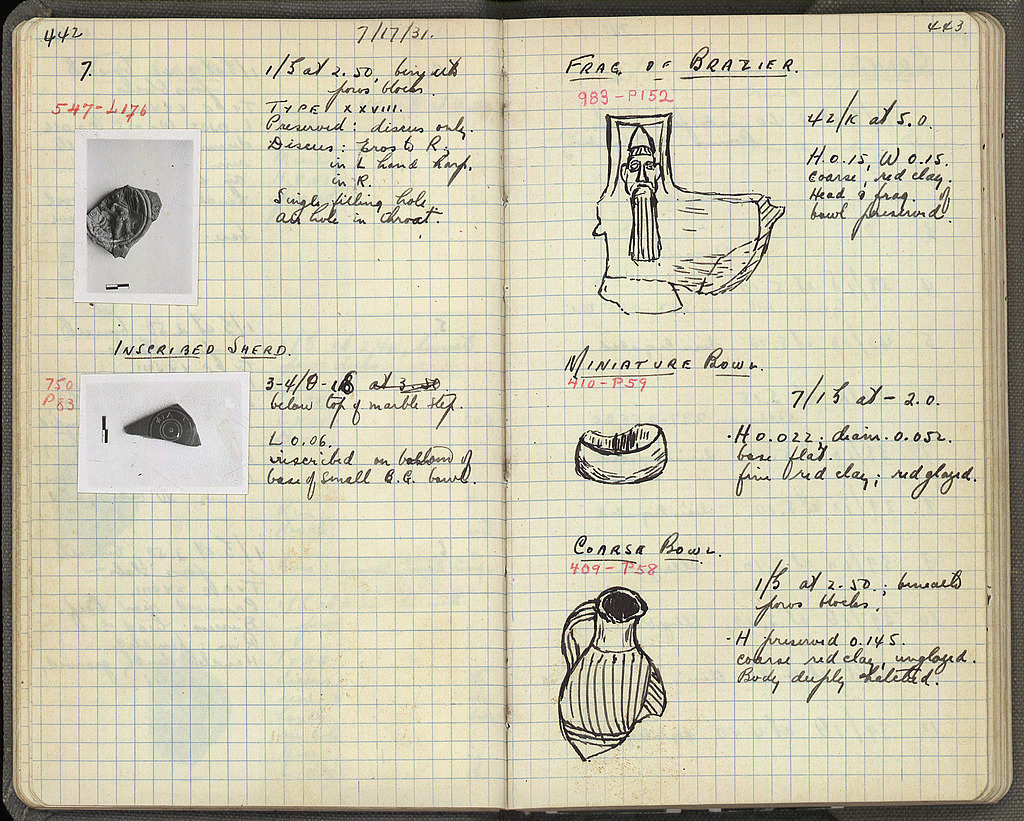 442
7/17/31.
7.
547-L176
1/Б at 2.50, beneath
poros blocks.
TYPE XXVIII.
Preserved: discus only.
Discus: Eros to R;
in L hand harp,
in R.
Single filling hole.
air hole in throat.
INSCRIBED SHERD.
750
P83
3-4/Θ-ΙΒ at 3.50
below top of marble step.
L 0.06.
inscribed on bottom of
base of small B.G. bowl.
443
FRAG. OF BRAZIER.
983-P152
42/K at 5.0.
H. 0.15. W 0.15.
coarse, red clay.
Head & frag. of
bowl preserved.
MINIATURE BOWL.
410-P59
7/ at -2.0.
H 0.022; diam. 0.052.
base flat.
fine red clay; red glazed.
COARSE BOWL.
409-P58
1/Б at 2.50; beneath
poros blocks.
H preserved 0.145.
coarse red clay, unglazed.
Body deeply